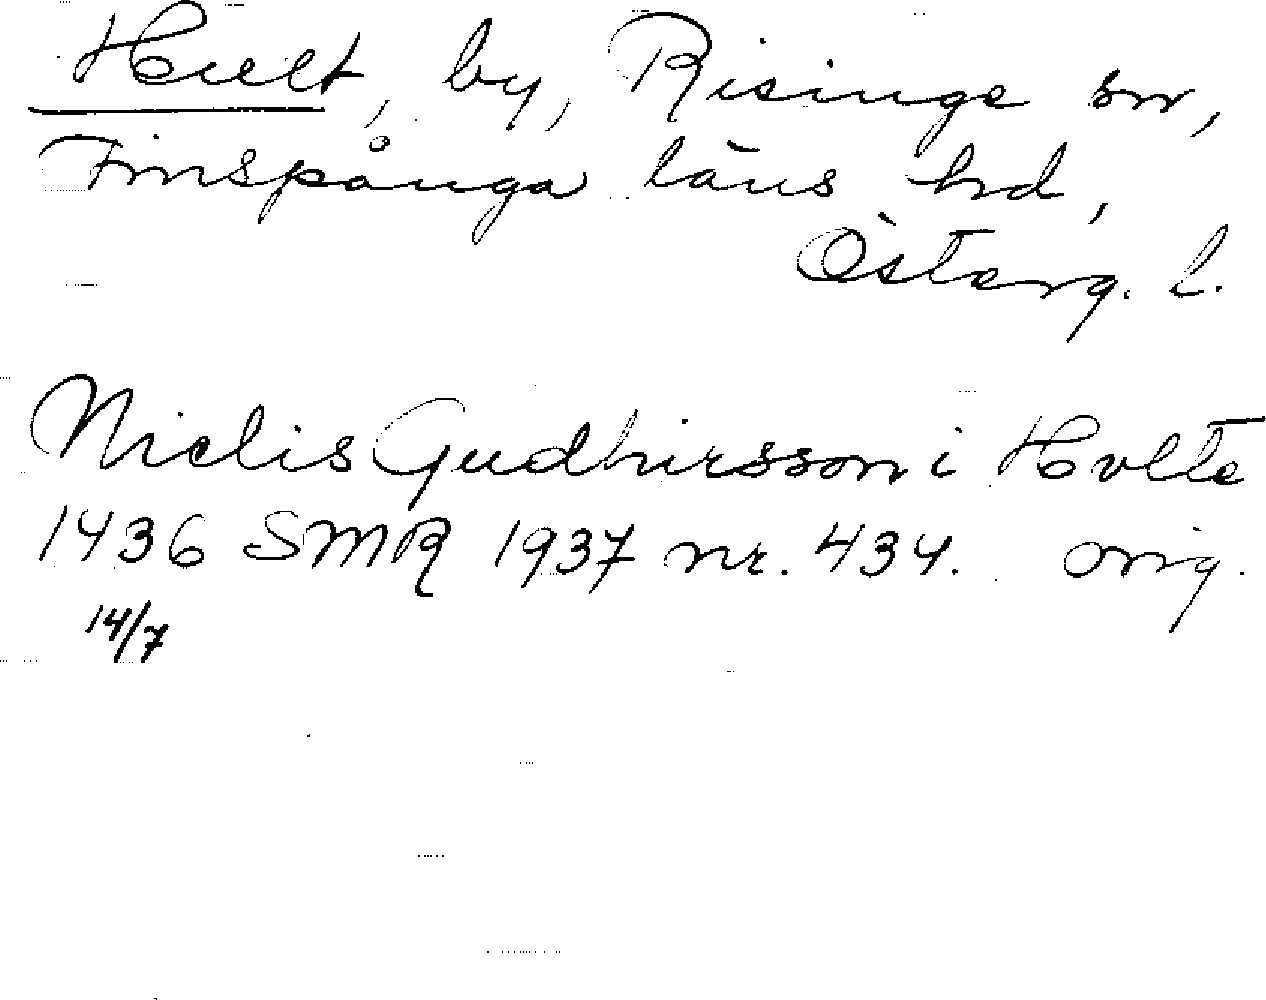 Hult, by, Risinge sn,
Finspånga läns hd,
Österg. l.
Niclis Gudhirsson i Hvlte
1436 SMR 1937 nr. 434. orig.
14/7